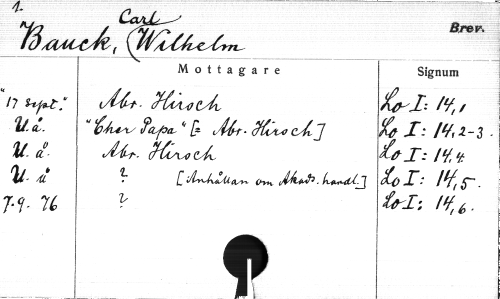 1.
Bauck, (Carl Wilhelm
Brev.
Mottagare
Signum
"17 Sept." Abr. Hirsch Lo I: 14,1
U.å. "Cher Papa" [= Abr. Hirsch] Lo I: 14,2-3.
U.å. Abr. Hirsch Lo I: 14,4
U.å ? [Anhållan om Akads. handl.] Lo I: 14,5.
7.9. 76 ? Lo I: 14,6.